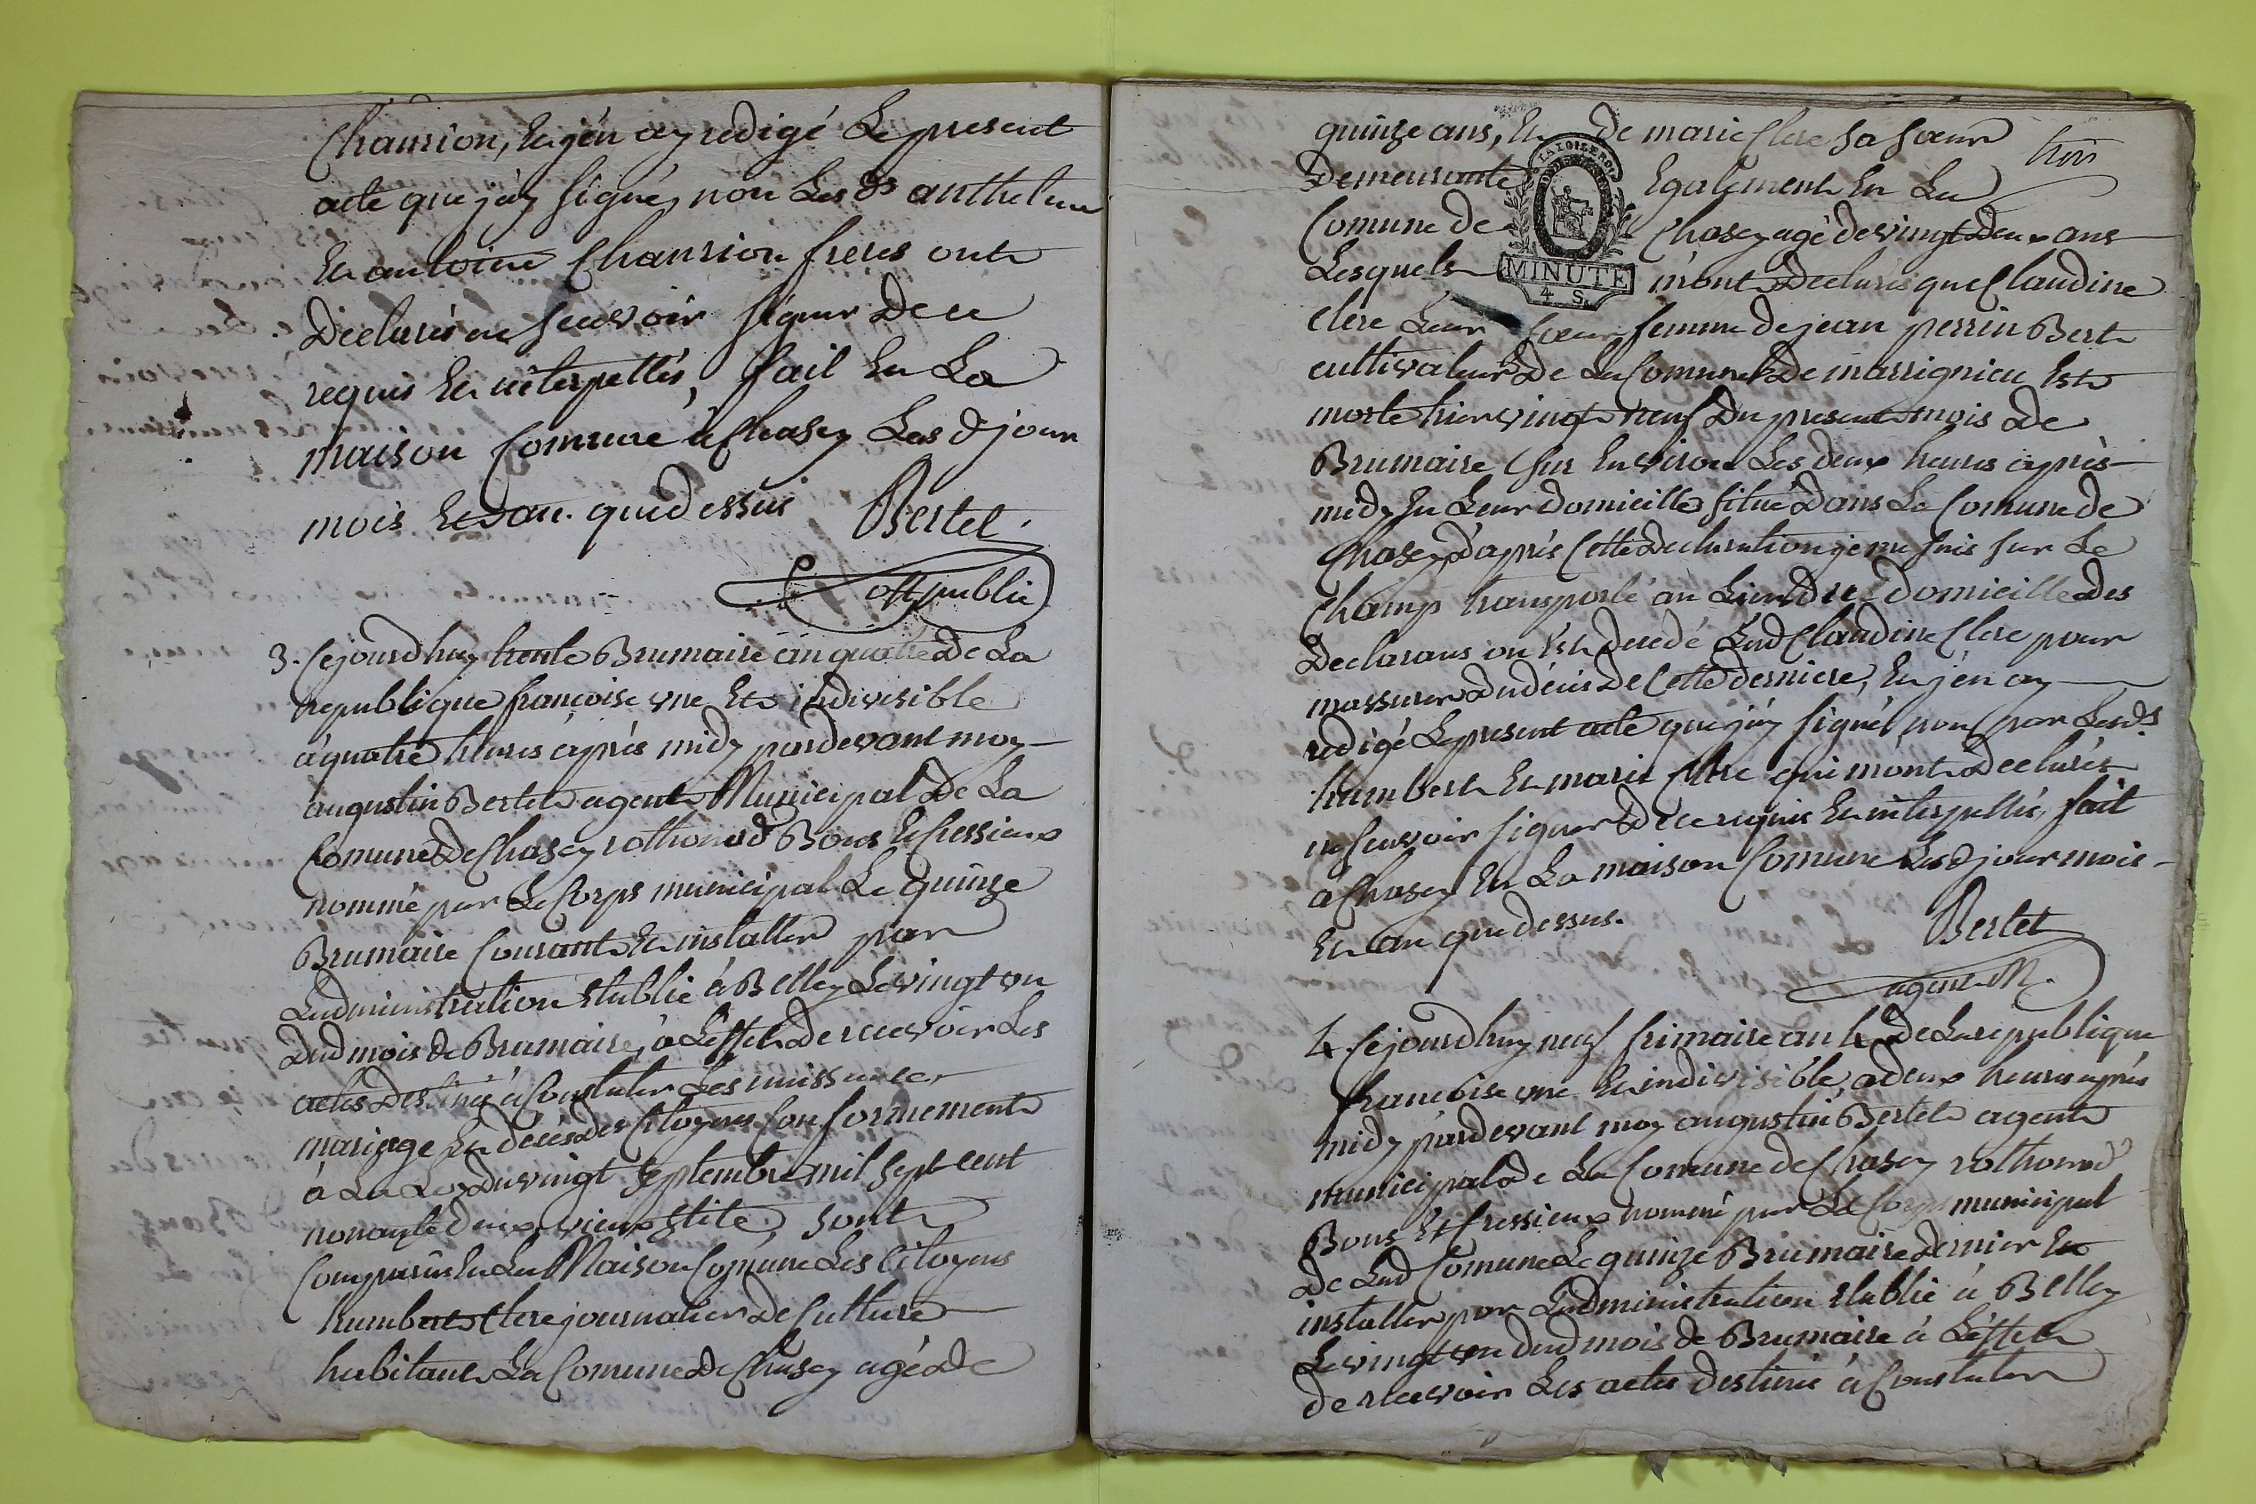 Chaurion, et j'en ay redigé Le present
acte que j'ay signé, non Les ds anthelme
et antoine Chaurion freres ont
Declarés ne scavoir signer De ce
requis et interpellés, fait en La
maison Comune à Chasey Les d jour
mois et an que dessus Bertet
off public
3. Cejourdhuy trente Brumaire an quatre De La
republique françoise une et indivisible
à quatre heures après midy pardevant moy
augustin Bertet agent Municipal De La
Comune De Chasey rothonod Bons et Cressieux
nommé par Le Corps municipal Le quinze
Brumaire Courant et installer par
Ladministration etablie à Belley Le vingt un
Dud mois de Brumaire, à Leffet De recevoir Les
actes Destinés à Constater Les naissance,
mariage et décès des Citoyens Conformement
à La Loy Du vingt septembre mil sept cent
nonante deux vieux stile, sont
Comparus en La Maison Comune Les Citoyens
humbert Clere journalier De Culture
habitant La Comune De Chasey agé De
quinze ans, et de marie Clere sa sœur trois
Demeurante Egalement en La
Comune de Chasey agé de vingt Deux ans
LA LOI LE ROI
MINUTE
4 S.
Lesquels m'ont Declarés que Claudine
Clere Leur sœur femme de jean perrin Bert
cultivateur De La Comune De marrignieu Est
morte hier vingt neuf Du present mois De
Brumaire sur Environ Les deux heures après
midy En Leur domicille situé Dans La Comune de
Chasey D'après Cette Declaration je me suis sur Le
Champ transporté au Lieu du Domicille Des
Declarans ou Est decedé Lad Claudine Clere pour
massurer du décès De Cette derniere, et j'en ay
redigé Le present acte que j'ay signé non par Lesds
humbert et marie Clere qui m'ont Declarés
ne scavoir signer De ce requis et interpellés, fait
à Chasey en La maison Comune Les d jour mois
et an que dessus. Bertet
agent M.
4. Cejourdhuy neuf frimaire an 4 De La republique
francoise une et indivisible, à deux heures après
midy pardevant moy augustin Bertet agent
municipal De La Comune de Chasey rothonod
Bons et Cressieux nommé par Le Corps municipal
De Lad Comune Le quinze Brumaire Dernier et
installer par Ladministration etablie à Belley
Le vingt un dud mois de Brumaire à Leffet
de recevoir Les actes destinés à Constater